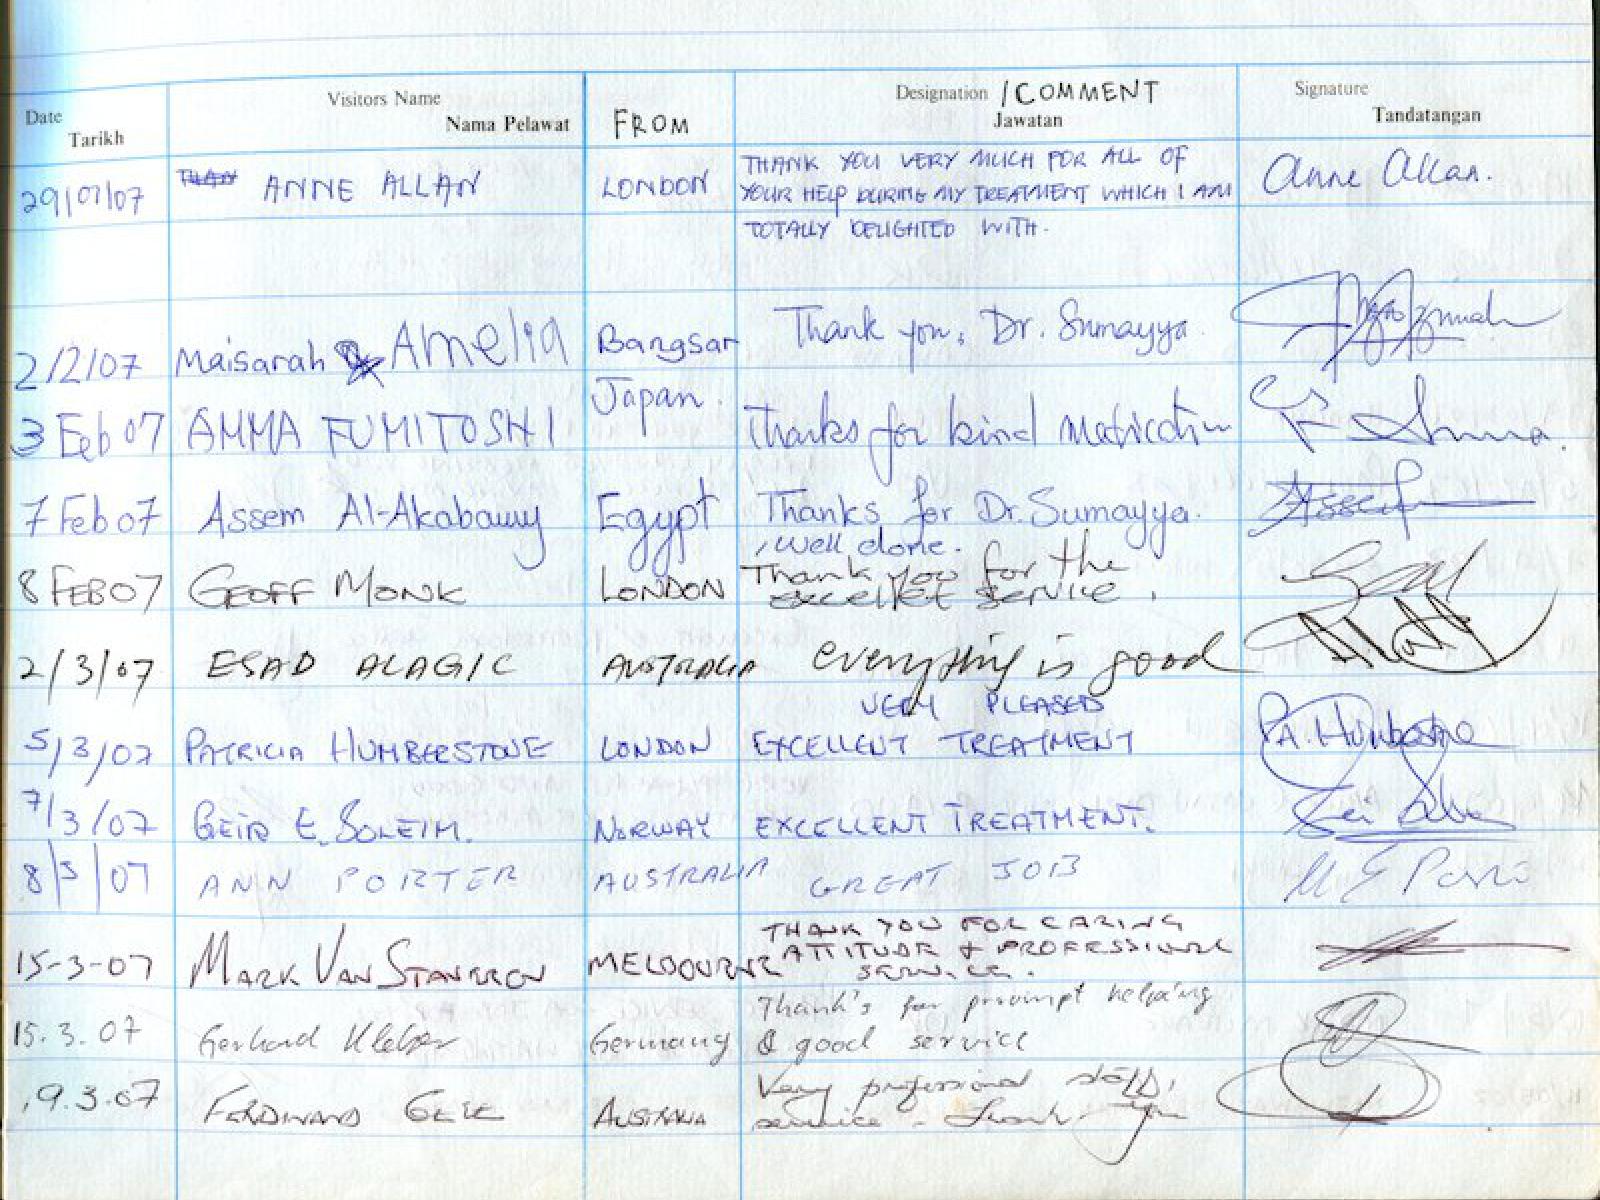 Date Tarikh Visitors Name Nama Pelawat FROM Designation /COMMENT Jawatan Signature Tandatangan
29/01/07 ANNE ALLAN LONDON THANK YOU VERY MUCH FOR ALL OF
YOUR HELP DURING MY TREATMENT WHICH I AM
TOTALLY DELIGHTED WITH. Anne Allan.
2/2/07 Maisarah & Amelia Bangsar Thank you, Dr. Sumayya
3 Feb 07 AMMA FUMITOSHI Japan. Thanks for kind
7 Feb 07 Assem Al-Akabawy Egypt Thanks for Dr. Sumayya.
, well done. Assem
8 FEB 07 GEOFF MONK LONDON Thank you for the
excellet service.
2/3/07 ESAD ALAGIC AUSTRALIA everything is good
5/3/07 PATRICIA HUMBERSTONE LONDON VERY PLEASED
EXCELLENT TREATMENT P.A. Humberstone
7/3/07 GEIR E. SOLEIM. NORWAY EXCELLENT TREATMENT.
8/3/07 ANN PORTER AUSTRALIA GREAT JOB
15-3-07 MARK VAN MELBOURNE THANK YOU FOR CARING
ATTITUDE & PROFESSIONAL
SERVICE.
15.3.07 Gerhard Germany Thank's for prompt helping
& good service
9.3.07 FERDINAND AUSTRALIA Very professional staff,
service - Thank you